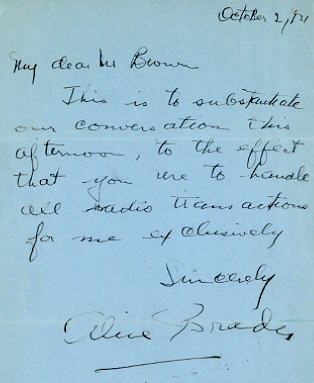 October 2, '21
My dear Mr Brown
This is to substantiate
our conversation this
afternoon, to the effect
that you are to handle
all radio transactions
for me exclusively
Sincerely
Alice Brady